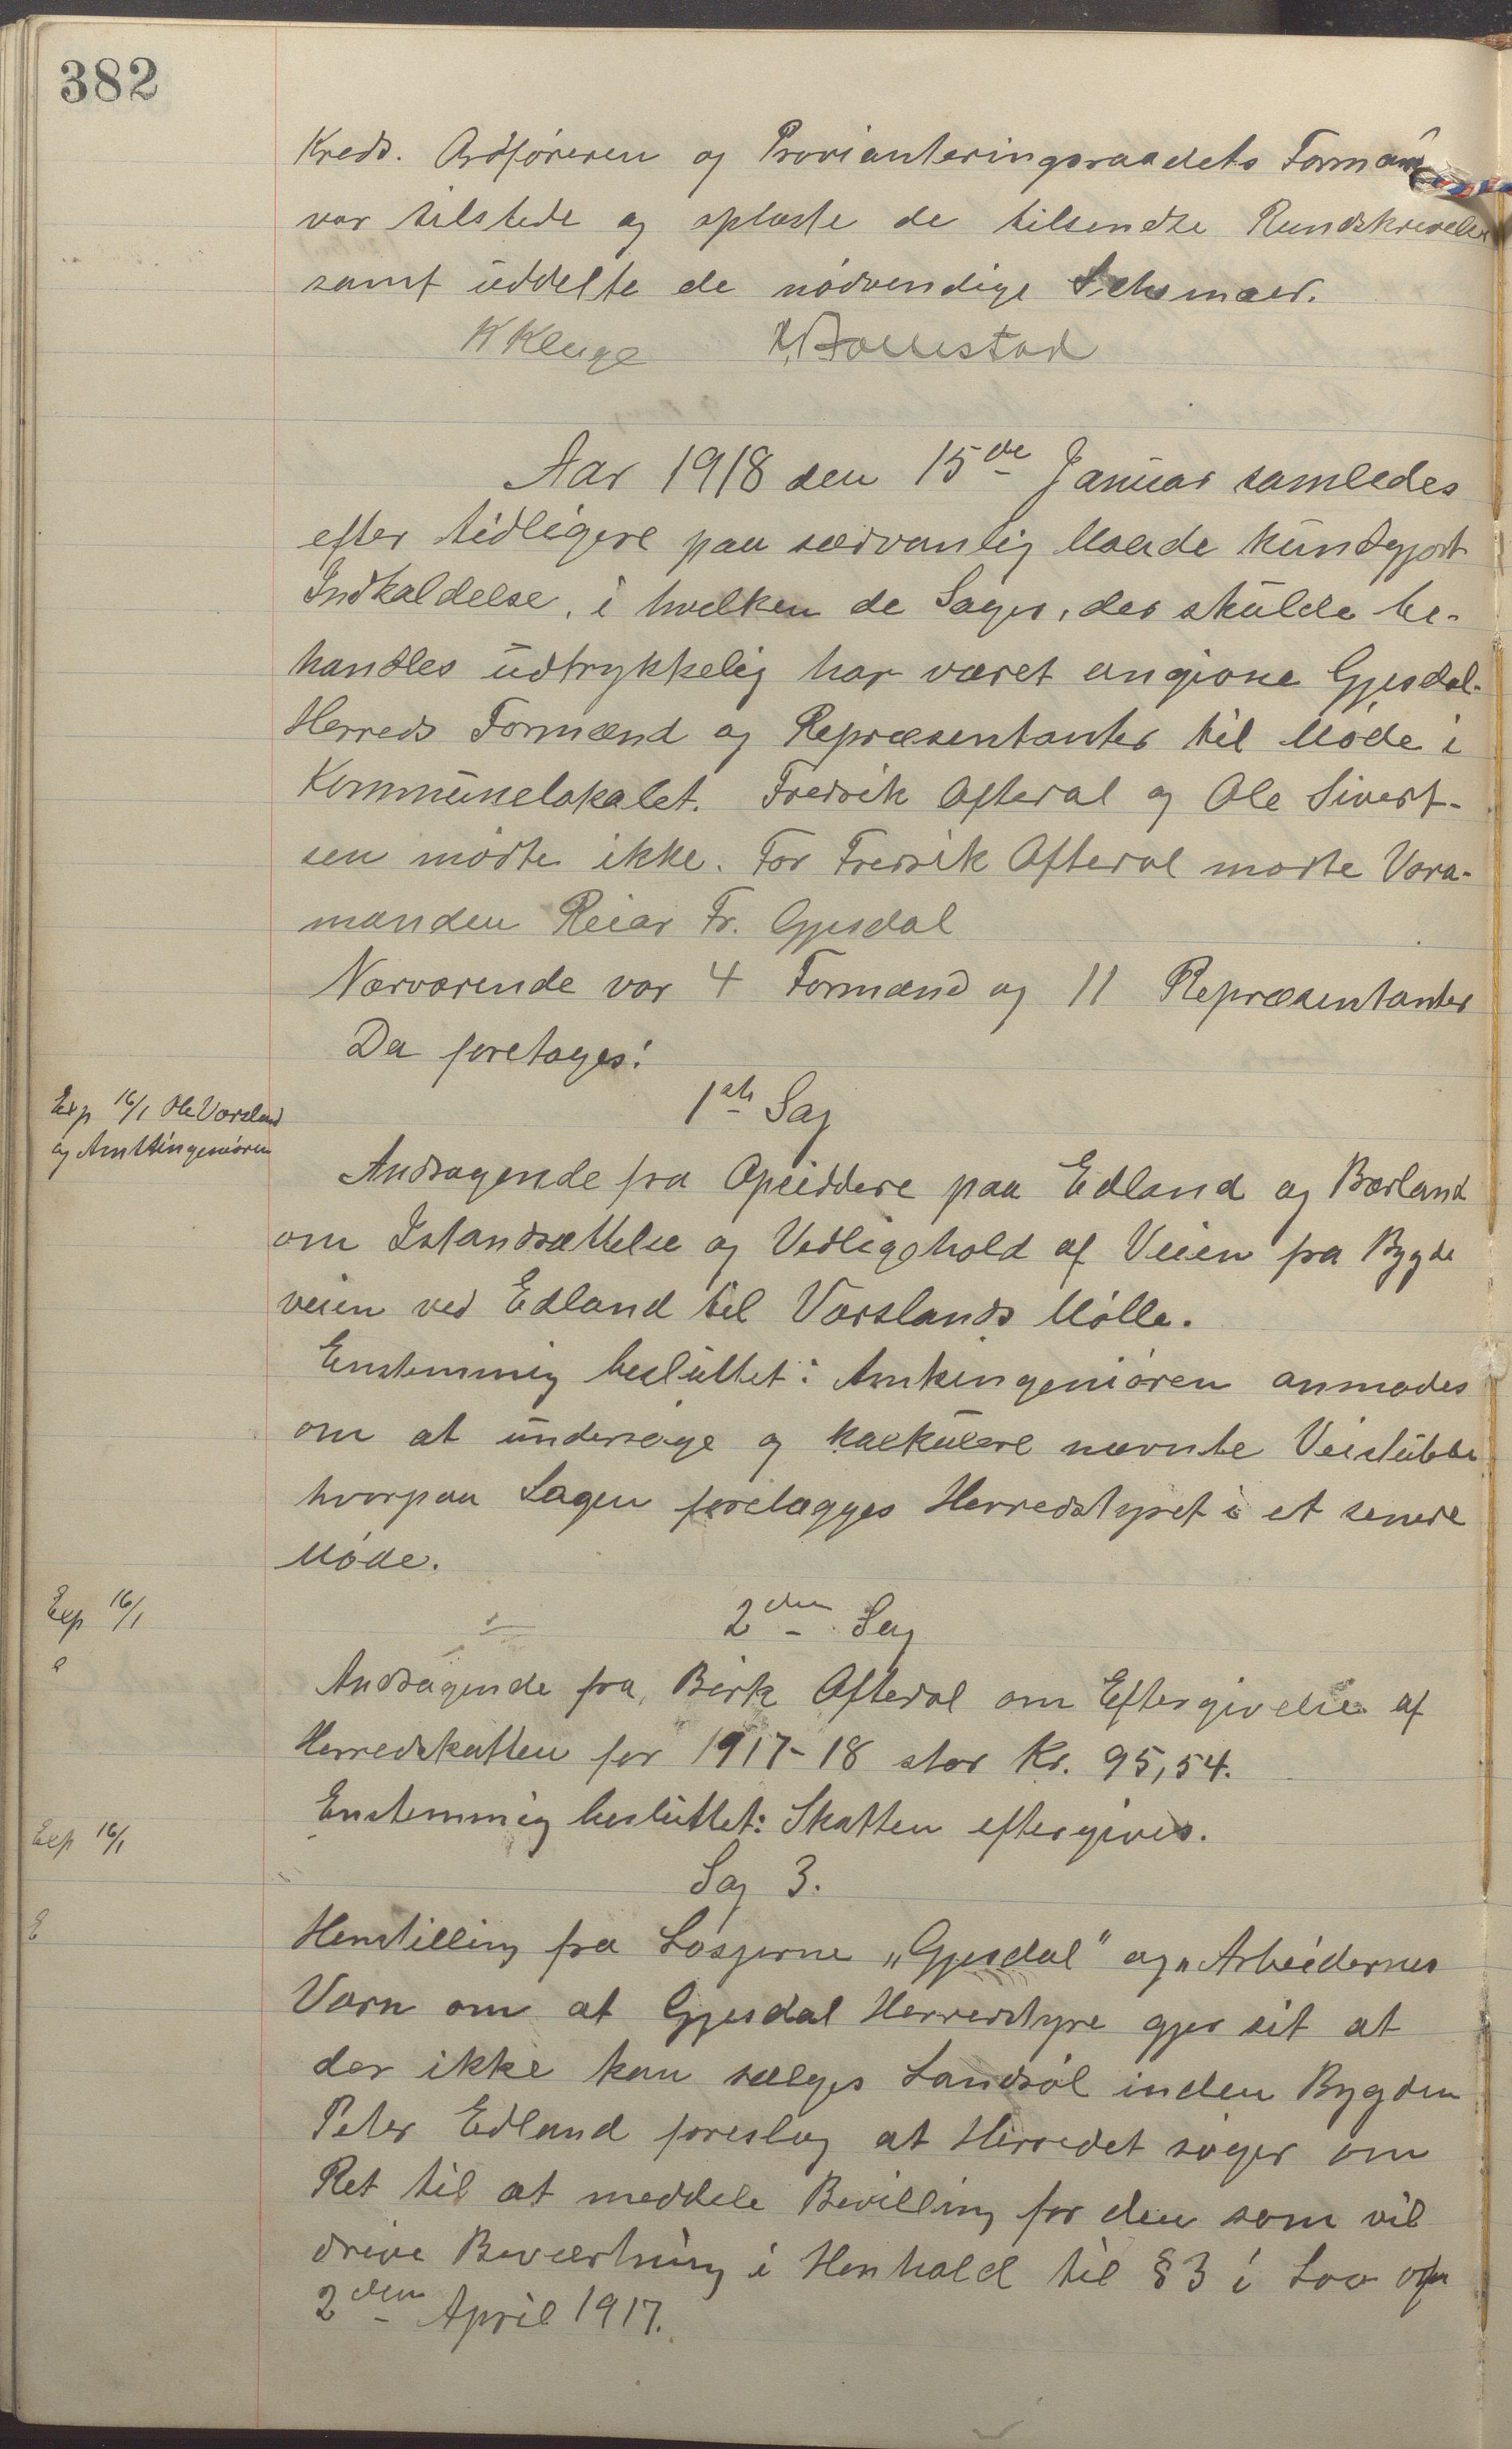 382
Kreds. Ordføreren og Provianteringsraadets Formand
var tilstede og oplæste de tilsendte Rundskrivelser
samt uddelte de nødvendige Schemaer.
K Kluge
Aar 1918 den 15de Januar samledes
efter tidligere paa sædvanlig Maade kundgjort
Indkaldelse, i hvilken de Sager, der skulde be-
handles udtrykkelig har været angivne Gjesdal
Herreds Formænd og Repræsentanter til Møde i
Kommunelokalet. Fredrik Ofteral og Ole Sivert-
sen mødte ikke. For Fredrik Ofteral mødte Vara-
manden Reiar Fr. Gjesdal
Nærværende var 4 Formænd og 11 Repræsentanter
Da foretages:
Exp 16/1 Ole Værsland
og Amtsingeniøren
1ste Sag
Andragende fra Opsiddere paa Edland og Bærland
om Istandsættelse og Vedligehold af Veien fra Bygde
veien ved Edland til Værslands Mølle.
Enstemmig besluttet: Amtsingeniøren anmodes
om at undersøge og kalkulere nævnte Veistubbe
hvorpaa Sagen forelægges Herredstyret i et senere
Møde.
Exp 16/1
2den Sag
Andragende fra Birk Ofteral om Eftergivelse af
Herredskatten for 1917-18 stor Kr. 95,54.
Enstemmig besluttet: Skatten eftergives.
Exp 16/1
Sag 3.
E
Henstilling fra Losjerne „Gjesdal" og „Arbeidernes
Værn om at Gjesdal Herredstyre gjør sit at
der ikke kan sælges Landsøl inden Bygden
Peter Edland foreslog at Herredet søger om
Ret til at meddele Bevilling for den som vil
drive Beværtning i Henhold til § 3 i Lov om
2den April 1917.